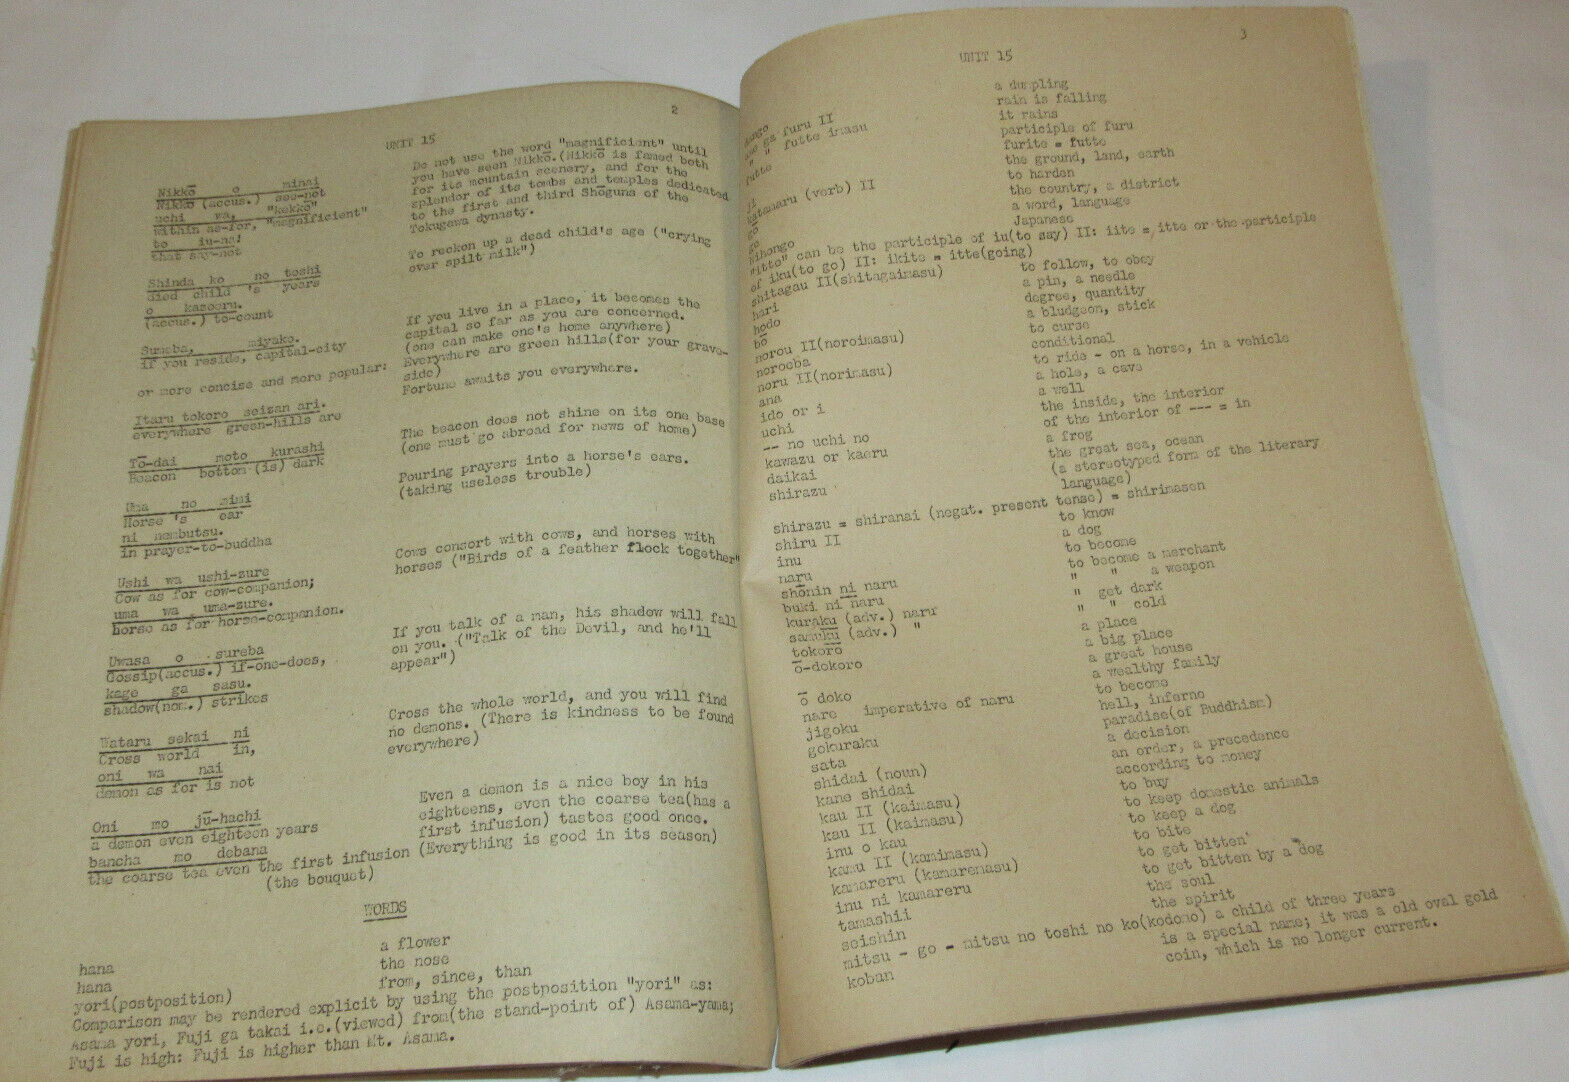 2
UNIT 15
Nikkō o minai
Nikkō (accus.) see-not
uchi wa, "kekkō"
within as-for, "magnificient"
to iu-na!
that say-not
Do not use the word "magnificient" until
you have seen Nikkō.(Nikkō is famed both
for its mountain scenery, and for the
splendor of its tombs and temples dedicated
to the first and third Shōguns of the
Tokugawa dynasty.
Shinda ko no toshi
died child 's years
o kazoeru.
(accus.) to-count
To reckon up a dead child's age ("crying
over spilt milk")
Sumeba, miyako.
if you reside, capital-city
or more concise and more popular:
If you live in a place, it becomes the
capital so far as you are concerned.
(one can make one's home anywhere)
Itaru tokoro seizan ari.
everywhere green-hills are
Everywhere are green hills(for your grave-
side)
Fortune awaits you everywhere.
Tō-dai moto kurashi
Beacon bottom (is) dark
The beacon does not shine on its one base
(one must go abroad for news of home)
Uma no mimi
Horse 's ear
ni nembutsu.
in prayer-to-buddha
Pouring prayers into a horse's ears.
(taking useless trouble)
Ushi wa ushi-zure
Cow as for cow-companion;
uma wa uma-zure.
horse as for horse-companion.
Cows consort with cows, and horses with
horses ("Birds of a feather flock together"
Uwasa o sureba
Gossip(accus.) if-one-does,
kage ga sasu.
shadow(nom.) strikes
If you talk of a man, his shadow will fall
on you. ("Talk of the Devil, and he'll
appear")
Wataru sekai ni
Cross world in,
oni wa nai
demon as for is not
Cross the whole world, and you will find
no demons. (There is kindness to be found
everywhere)
Oni mo jū-hachi
a demon even eighteen years
bancha mo debana
the coarse tea even the first infusion
(the bouquet)
Even a demon is a nice boy in his
eighteens, even the coarse tea(has a
first infusion) tastes good once.
(Everything is good in its season)
WORDS
hana a flower
hana the nose
yori(postposition) from, since, than
Comparison may be rendered explicit by using the postposition "yori" as:
Asama yori, Fuji ga takai i.e.(viewed) from(the stand-point of) Asama-yama;
Fuji is high: Fuji is higher than Mt. Asama.
3
UNIT 15
a dumpling
ga furu II rain is falling
" " futte imasu it rains
futte participle of furu
furite = futte
ji the ground, land, earth
katamaru (verb) II to harden
go the country, a district
go a word, language
Nihongo Japanese
"itte" can be the participle of iu(to say) II: iite = itte or the participle
of iku(to go) II: ikite = itte(going)
shitagau II(shitagaimasu) to follow, to obey
hari a pin, a needle
hodo degree, quantity
bō a bludgeon, stick
norou II(noroimasu) to curse
norooba conditional
noru II(norimasu) to ride - on a horse, in a vehicle
ana a hole, a cave
ido or i a well
uchi the inside, the interior
-- no uchi no of the interior of --- = in
kawazu or kaeru a frog
daikai the great sea, ocean
shirazu (a stereotyped form of the literary
language)
shirazu = shiranai (negat. present tense) = shirimasen
shiru II to know
inu a dog
naru to become
shōnin ni naru to become a merchant
buki ni naru " " a weapon
kuraku (adv.) naru " get dark
samuku (adv.) " " " cold
tokoro a place
ō-dokoro a big place
a great house
ō doko a wealthy family
nare imperative of naru to become
jigoku hell, inferno
gokuraku paradise(of Buddhism)
sata a decision
shidai (noun) an order, a precedence
kane shidai according to money
kau II (kaimasu) to buy
kau II (kaimasu) to keep domestic animals
inu o kau to keep a dog
kamu II (kamimasu) to bite
kamareru (kamaremasu) to get bitten
inu ni kamareru to get bitten by a dog
tamashii the soul
seishin the spirit
mitsu - go - mitsu no toshi no ko(kodomo) a child of three years
koban is a special name; it was a old oval gold
coin, which is no longer current.